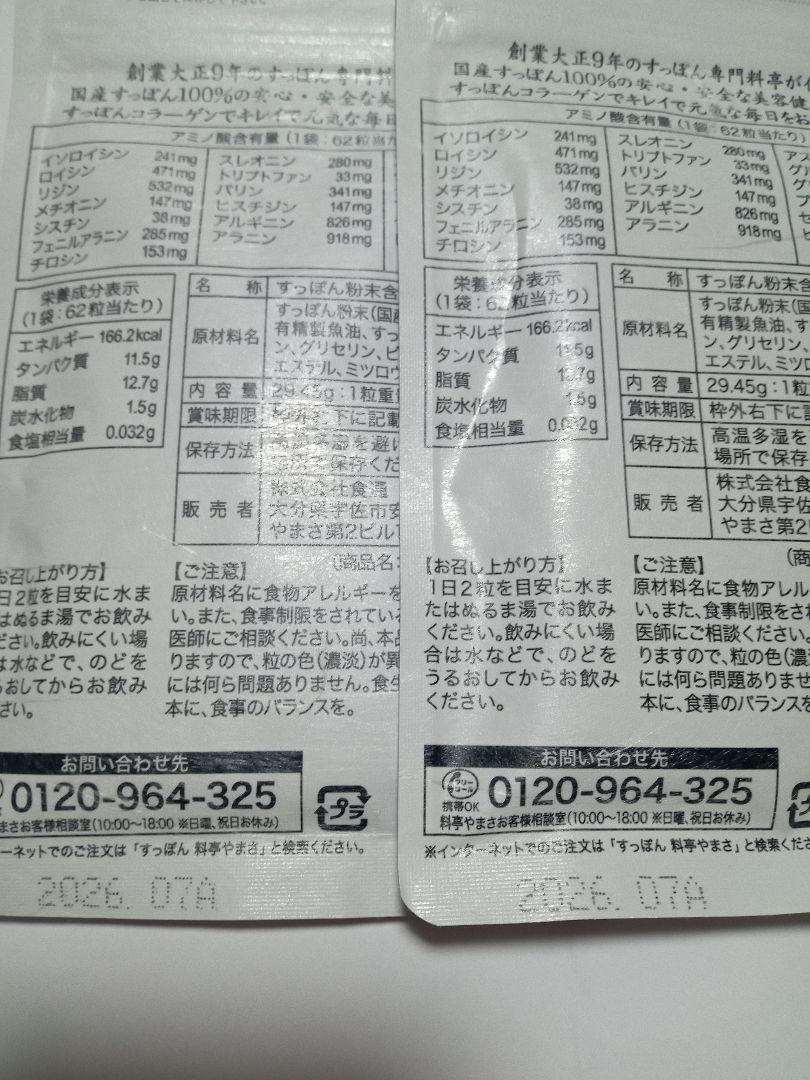 創業大正9年のすっぽん専門料
国産すっぽん100%の安心・安全な美
すっぽんコラーゲンでキレイで元気な毎日
アミノ酸含有量(1袋:62粒当た
イソロイシン 241mg スレオニン 280mg
ロイシン 471mg トリプトファン 33mg
リジン 532mg バリン 341mg
メチオニン 147mg ヒスチジン 147mg
シスチン 38mg アルギニン 826mg
フェニルアラニン 285mg アラニン 918mg
チロシン 153mg
栄養成分表示
(1袋:62粒当たり)
エネルギー 166.2kcal
タンパク質 11.5g
脂質 12.7g
炭水化物 1.5g
食塩相当量 0.032g
名 称 すっぽん粉末含
原材料名 すっぽん粉末(国産
有精製魚油、すっ
ン、グリセリン、ビ
エステル、ミツロウ
内 容 量 29.45g:1粒重
賞味期限 枠外右下に記載
保存方法 高温多湿を避け
場所で保存くだ
販 売 者 株式会社食通
大分県宇佐市安
やまさ第2ビル1
(商品名:
お召し上がり方】
日2粒を目安に水ま
はぬるま湯でお飲み
ださい。飲みにくい場
は水などで、のどを
るおしてからお飲み
さい。
【ご注意】
原材料名に食物アレルギーを
い。また、食事制限をされてい
医師にご相談ください。尚、本品
りますので、粒の色(濃淡)が異
には何ら問題ありません。食生
本に、食事のバランスを。
お問い合わせ先
0120-964-325
まさお客様相談室(10:00~18:00 ※日曜、祝日お休み)
プラ
ーネットでのご注文は「すっぽん 料亭やまさ」と検索ください。
2026. 07A
創業大正9年のすっぽん専門料亭が
国産すっぽん100%の安心・安全な美容健
すっぽんコラーゲンでキレイで元気な毎日をお
アミノ酸含有量(1袋:62粒当たり)
イソロイシン 241mg スレオニン 280mg ア
ロイシン 471mg トリプトファン 33mg グル
リジン 532mg バリン 341mg グ
メチオニン 147mg ヒスチジン 147mg プ
シスチン 38mg アルギニン 826mg セ
フェニルアラニン 285mg アラニン 918mg
チロシン 153mg
栄養成分表示
(1袋:62粒当たり)
エネルギー 166.2kcal
タンパク質 11.5g
脂質 12.7g
炭水化物 1.5g
食塩相当量 0.032g
名 称 すっぽん粉末含
原材料名 すっぽん粉末(国
有精製魚油、す
ン、グリセリン、
エステル、ミツロ
内 容 量 29.45g:1粒
賞味期限 枠外右下に記
保存方法 高温多湿を
場所で保存
販 売 者 株式会社食
大分県宇佐
やまさ第2
(商
【お召し上がり方】
1日2粒を目安に水ま
たはぬるま湯でお飲み
ください。飲みにくい場
合は水などで、のどを
うるおしてからお飲み
ください。
【ご注意】
原材料名に食物アレル
い。また、食事制限をされ
医師にご相談ください。
りますので、粒の色(濃
には何ら問題ありませ
本に、食事のバランスを
お問い合わせ先
フリーコール
携帯OK
0120-964-325
料亭やまさお客様相談室(10:00~18:00 ※日曜、祝日お休み)
※インターネットでのご注文は「すっぽん 料亭やまさ」と検索くださ
2026. 07A